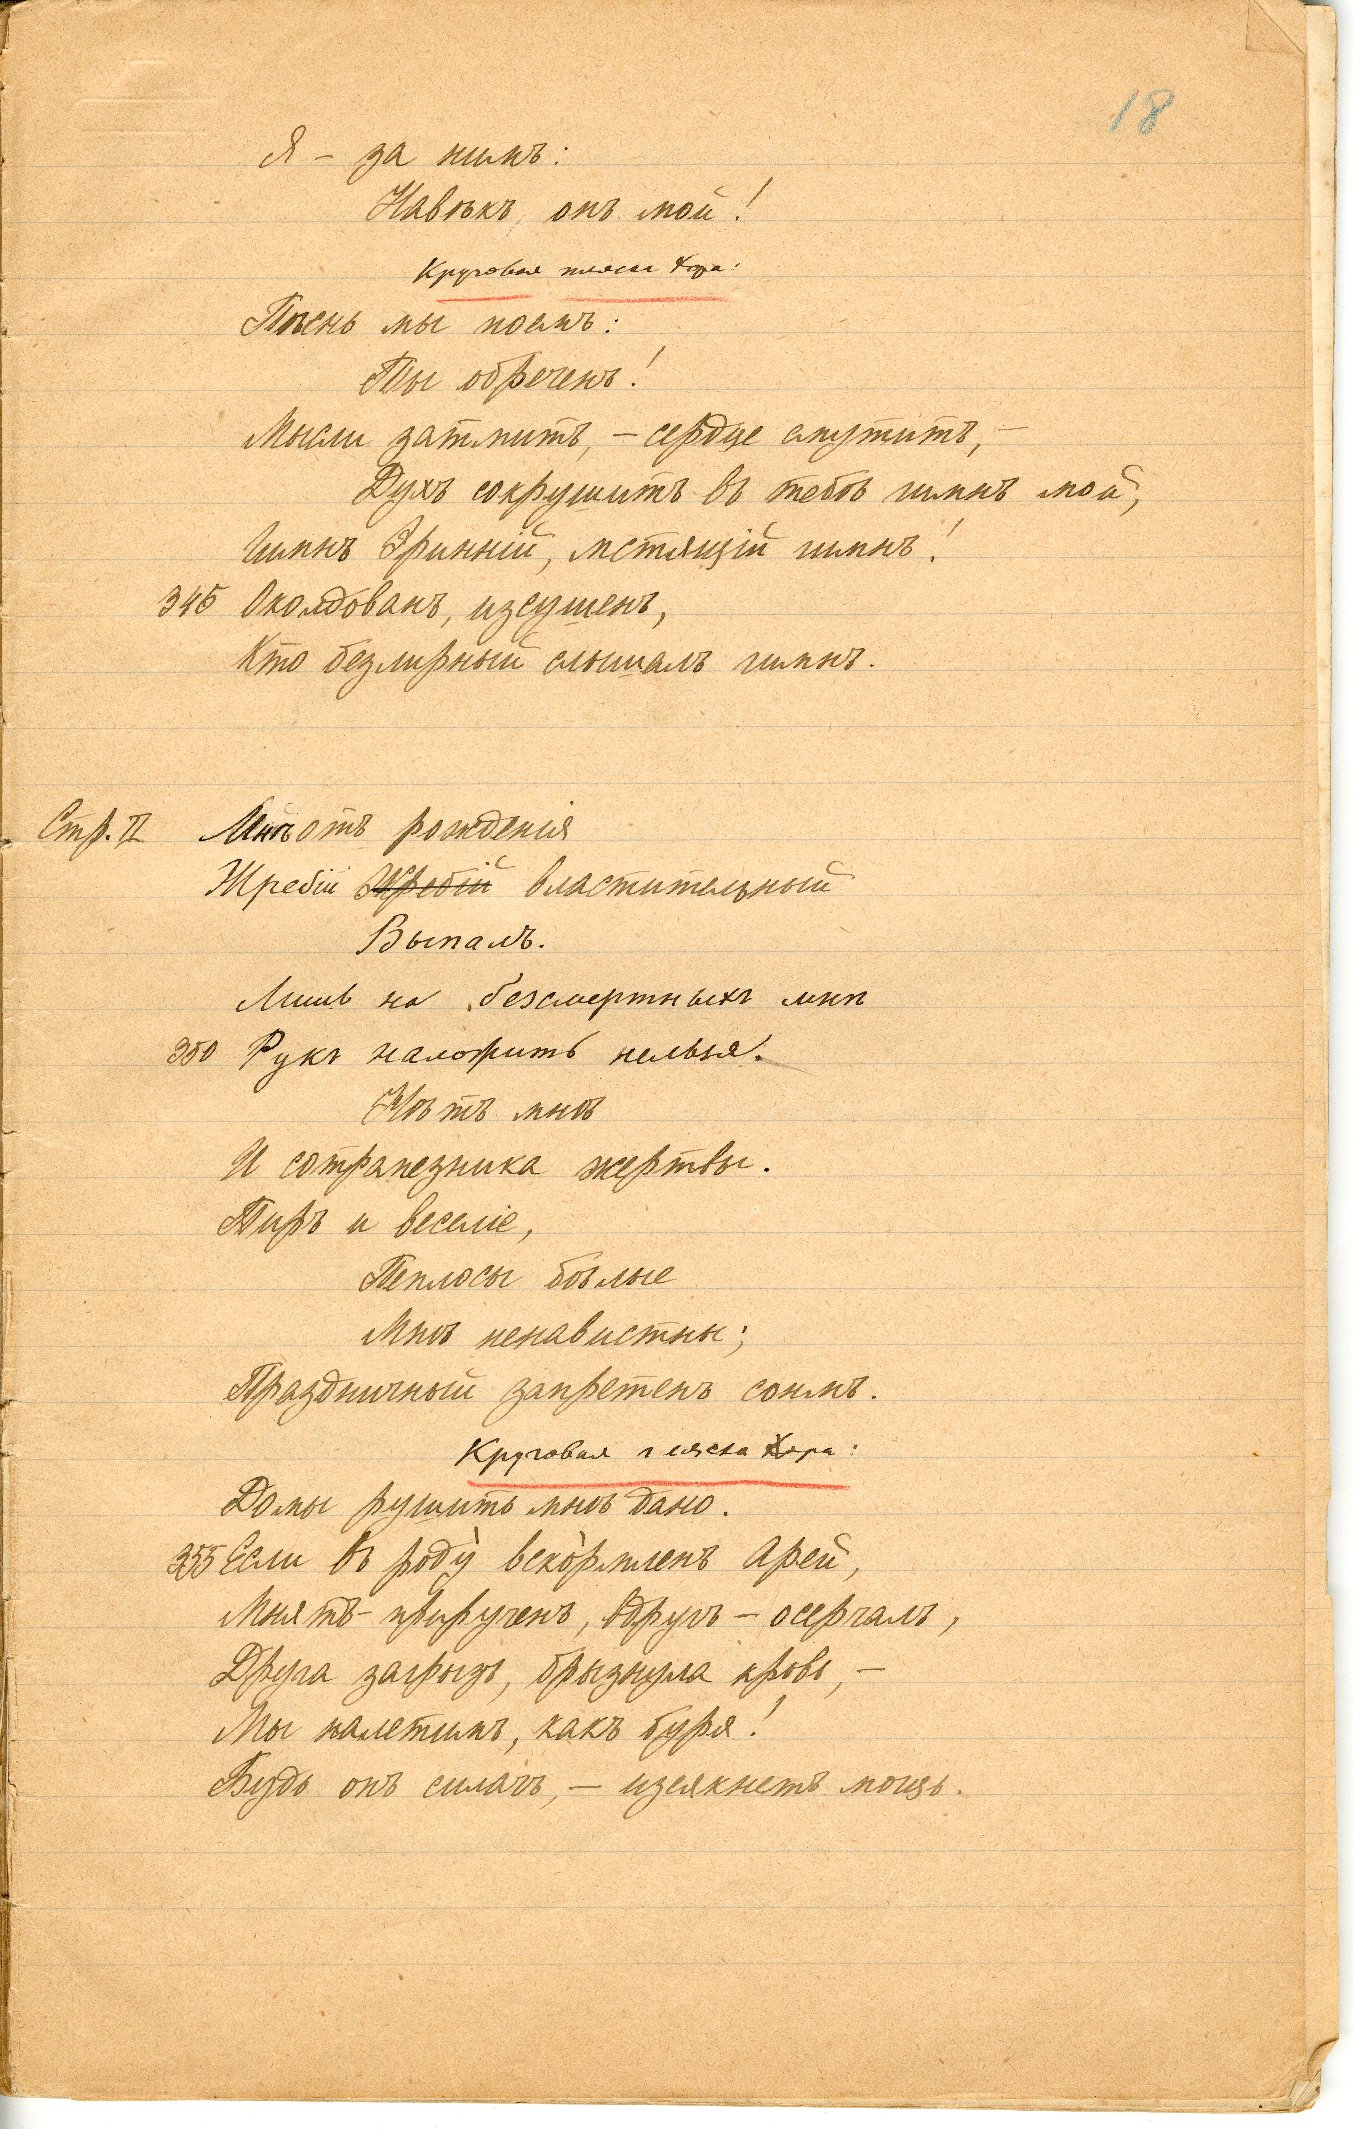 18
Я – за нимъ:
Навѣкъ онъ мой!
Круговая пляска Хора:
Пѣснь мы поемъ:
Ты обреченъ!
Мысли затмитъ, – сердце смутитъ, –
Духъ сокрушитъ въ тебѣ гимнъ мой,
Гимнъ Эринній, мстящій гимнъ!
345 Околдованъ, изсушенъ,
Кто безлирный слышалъ гимнъ.
Стр. II Мнѣ отъ рожденія
Жребій Жребій властительный
Выпалъ.
Лишь на безсмертныхъ мнѣ
350 Рукъ наложить нельзя.
Нѣтъ мнѣ
И сотрапезника жертвы.
Пиръ и веселіе,
Пеплосы бѣлые
Мнѣ ненавистны;
Праздничный запретенъ сонмъ.
Круговая пляска Хора:
Домы рушить мнѣ дано.
355 Если въ роду̀ вско̀рмленъ Арей,
Мнятъ – прирученъ, вдругъ – осерчалъ,
Друга загрызъ, брызнула кровь, –
Мы налетимъ, какъ буря!
Будь онъ силачъ, – изсякнетъ мощь.